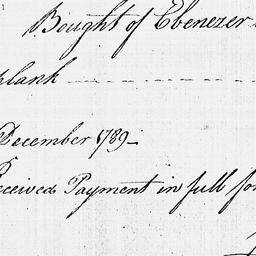 Bought of Ebenezer
plank
December 1789.
Received Payment in full for